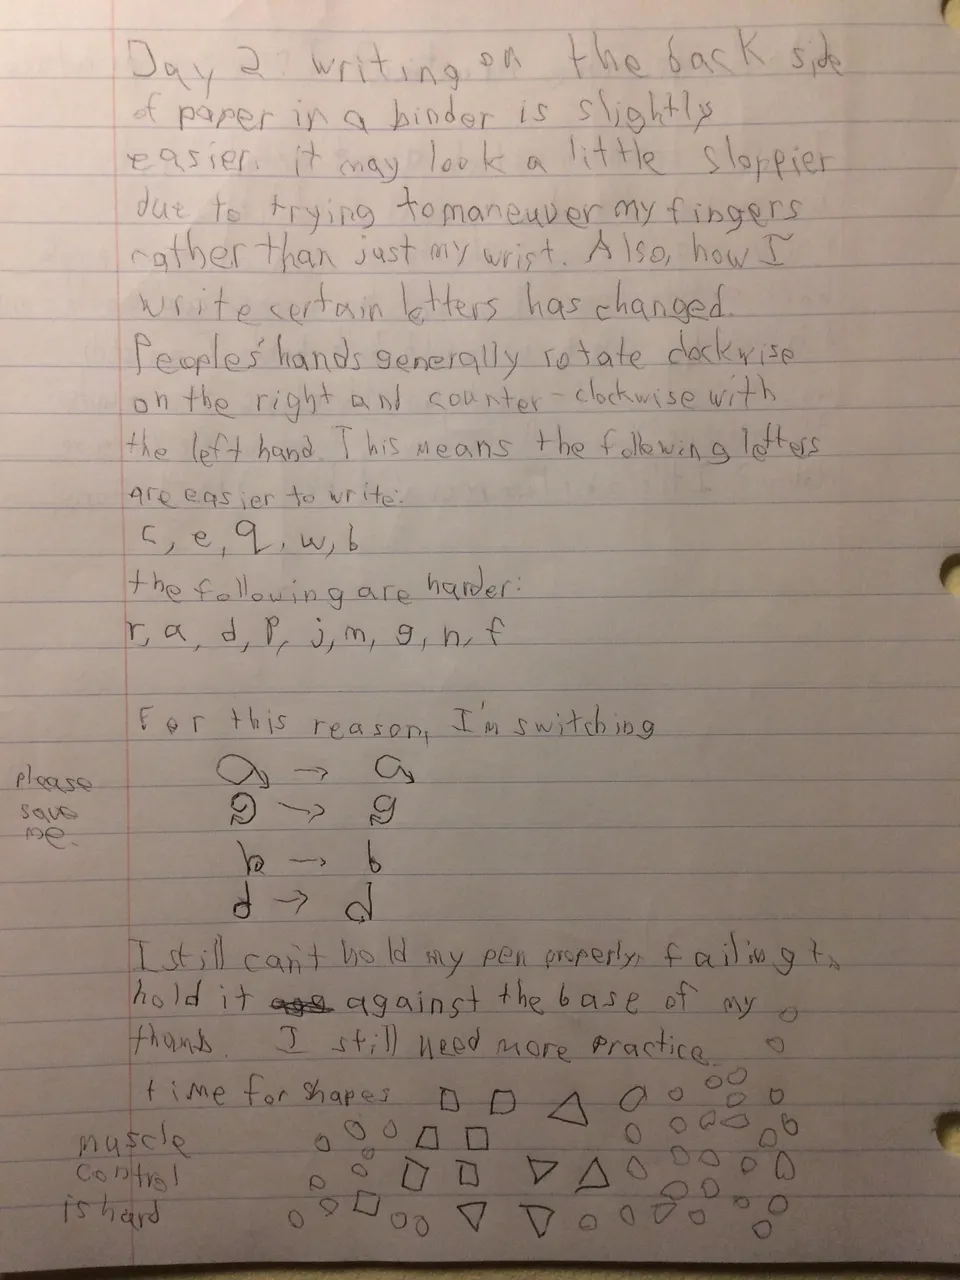 Day 2: writing on the back side
of paper in a binder is slightly
easier. it may look a little sloppier
due to trying to maneuver my fingers
rather than just my wrist. Also, how I
write certain letters has changed.
Peoples' hands generally rotate clockwise
on the right and counter-clockwise with
the left hand. This means the following letters
are easier to write:
c, e, q, w, b
the following are harder:
r, a, d, p, j, m, g, n, f
For this reason, I'm switching
a → a
g → g
b → b
d → d
please
save
me.
I still can't hold my pen properly, failing to
hold it against the base of my
thumb. I still need more practice.
time for shapes
muscle
control
is hard